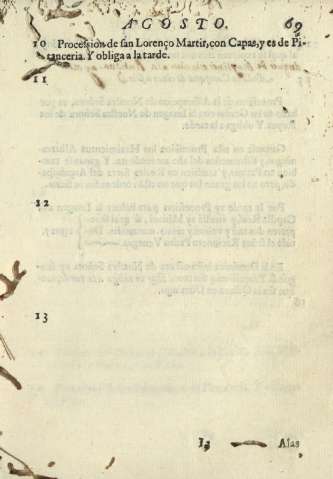 AGOSTO. 69
10 Procession de san Lorenço Martir, con Capas, y es de Pi-
tanceria. Y obliga a la tarde.
11
12
13
I3 Alas